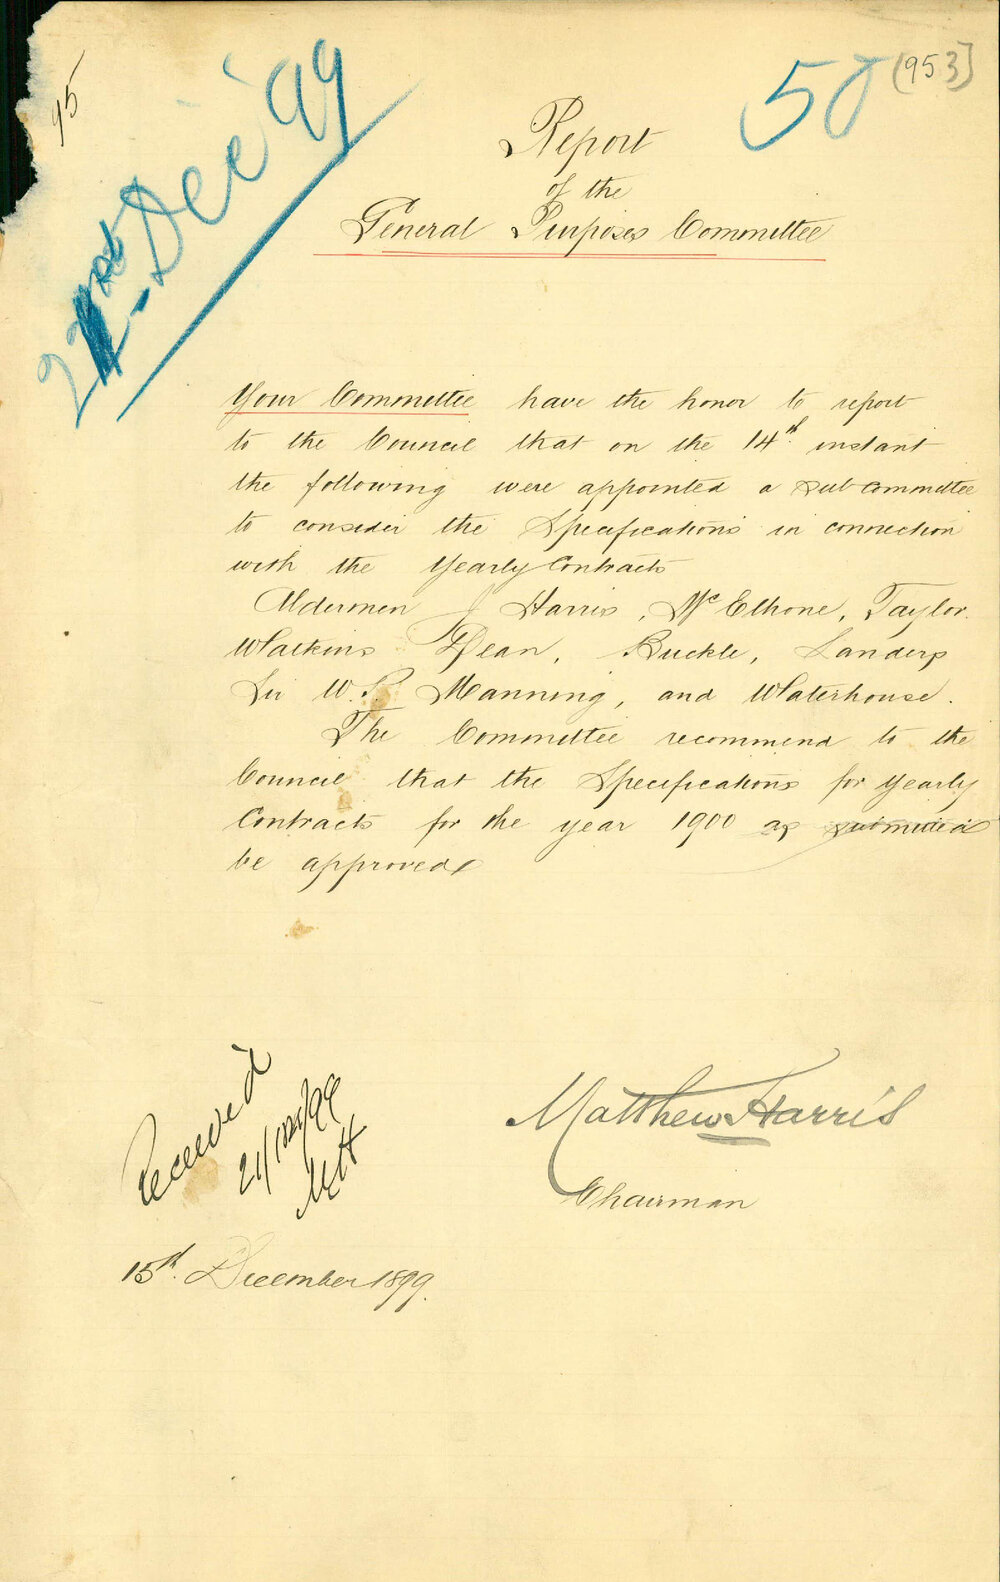 95
Dec '99
50
(953]
Report
of the
General Purposes Committee
Your Committee have the honor to report
to the Council that on the 14th. instant
the following were appointed a sub committee
to consider the Specifications in connection
with the Yearly Contracts
Aldermen J Harris, McElhone, Taylor.
Watkins Dean, Buckle, Landers
Sir W. P. Manning, and Waterhouse.
The Committee recommend to the
Council that the Specifications for Yearly
Contracts for the year 1900 as submitted
be approved
Received
21/12/99
MH
Matthew Harris
Chairman
15th. December 1899.